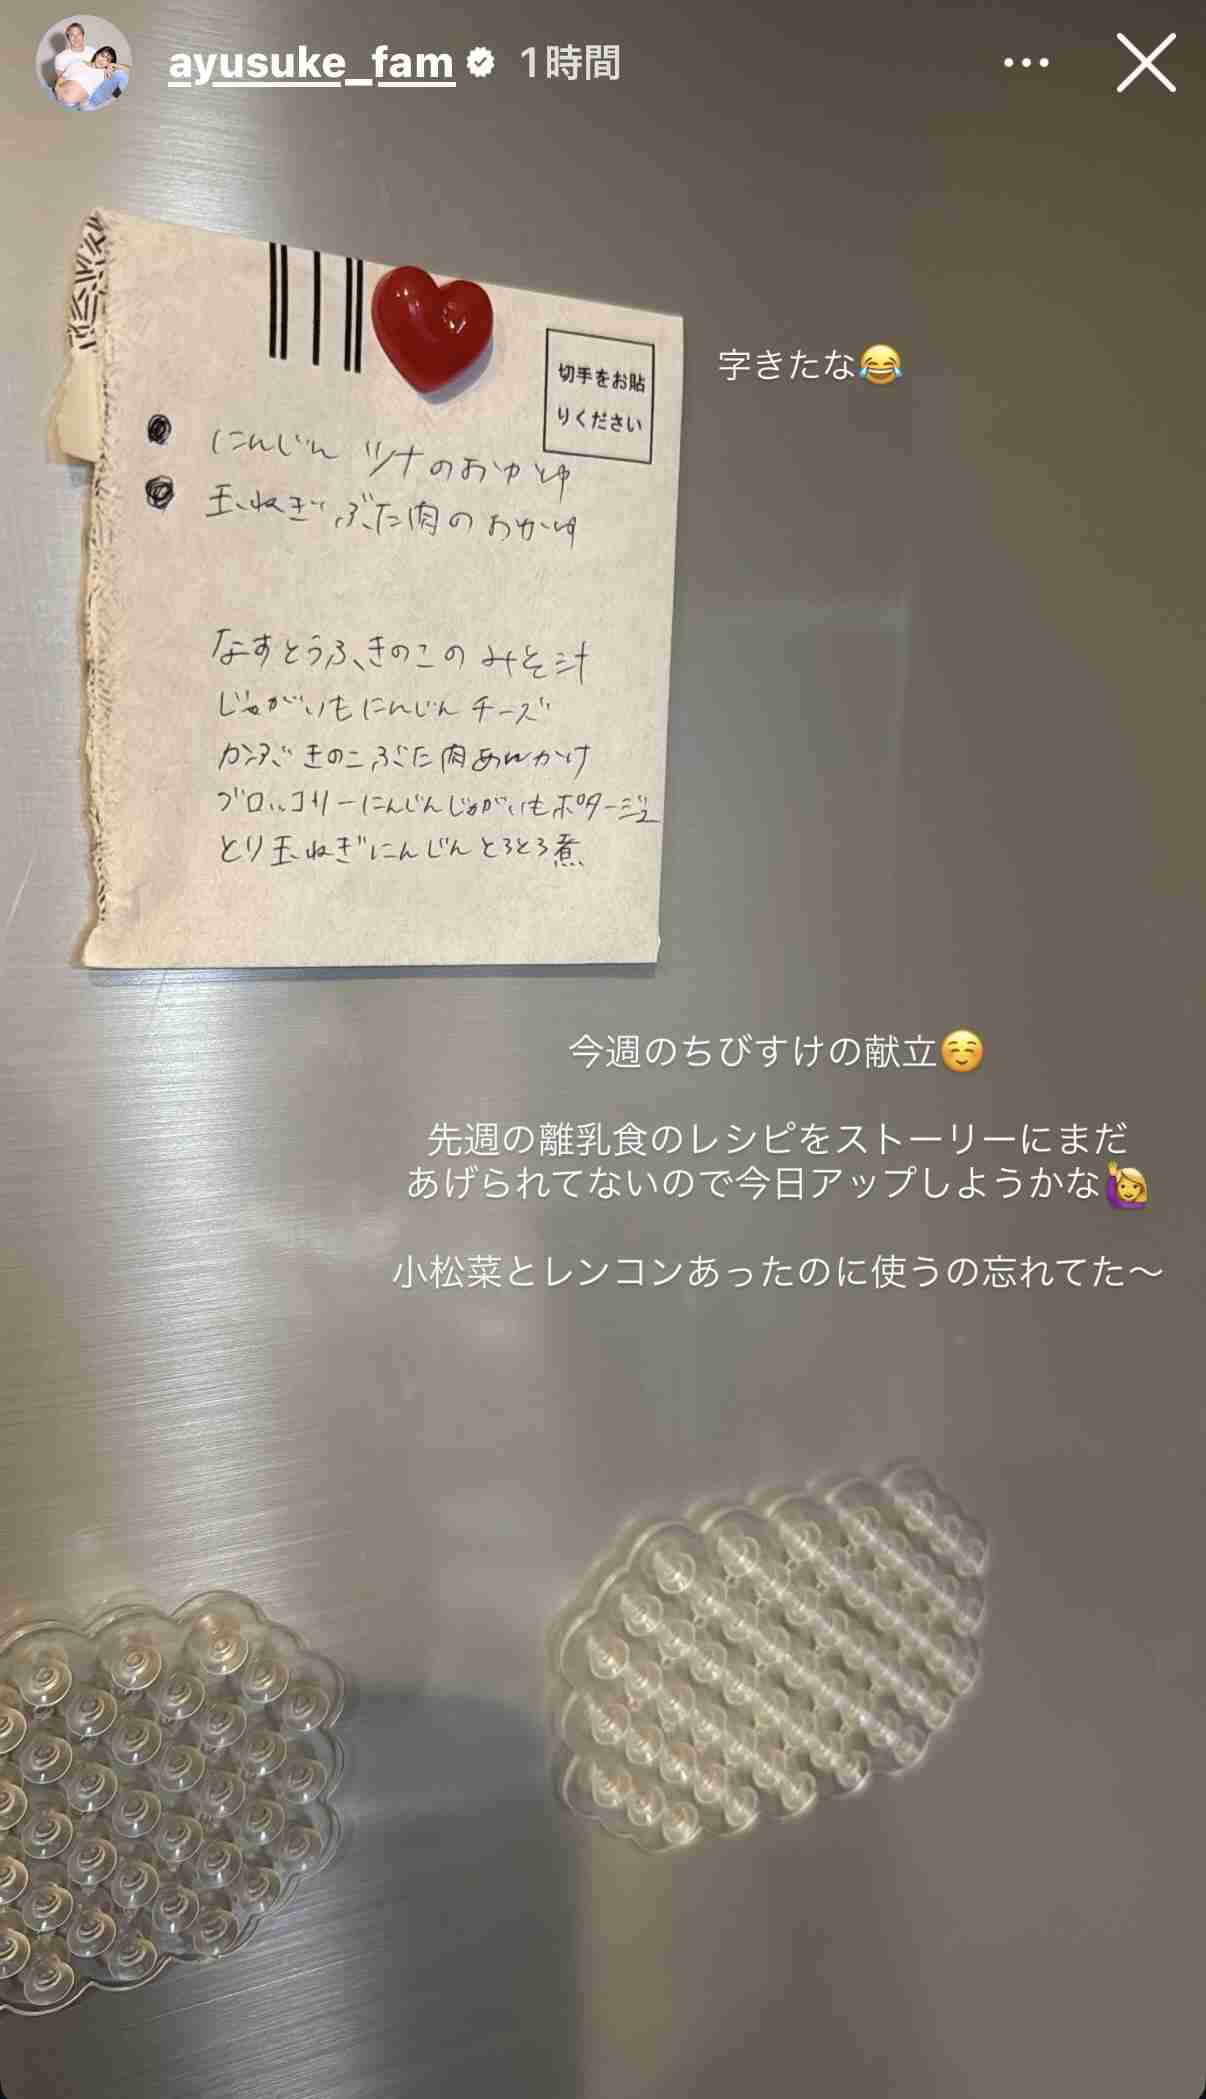 ayusuke_fam 1時間
切手をお貼
りください
字きたな😂
にんじん ツナのおかゆ
玉ねぎ ぶた肉のおかゆ
なすとうふきのこのみそ汁
じゃがいもにんじんチーズ
きのこぶた肉あんかけ
ブロッコリーにんじんじゃがいもポタージュ
とり玉ねぎにんじんとろとろ煮
今週のちびすけの献立☺️
先週の離乳食のレシピをストーリーにまだ
あげられてないので今日アップしようかな🙋‍♀️
小松菜とレンコンあったのに使うの忘れてた〜